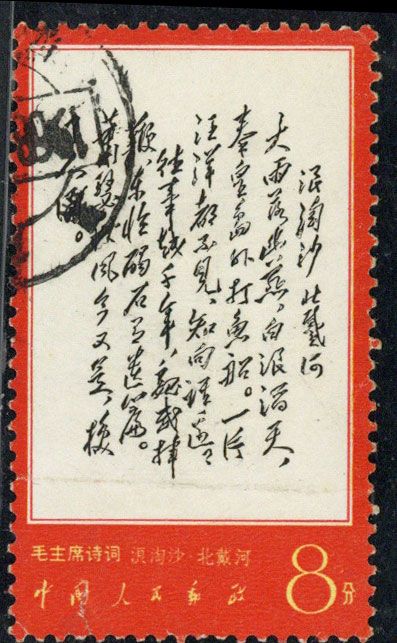 浪淘沙 北戴河
大雨落幽燕，白浪滔天，
秦皇島外打魚船。一片
汪洋都不見，知向誰邊？
往事越千年，魏武挥
鞭，东临碣石有遗篇。
萧瑟秋风今又是，换
了人间。
毛主席诗词 浪淘沙·北戴河
中國人民邮政
8分